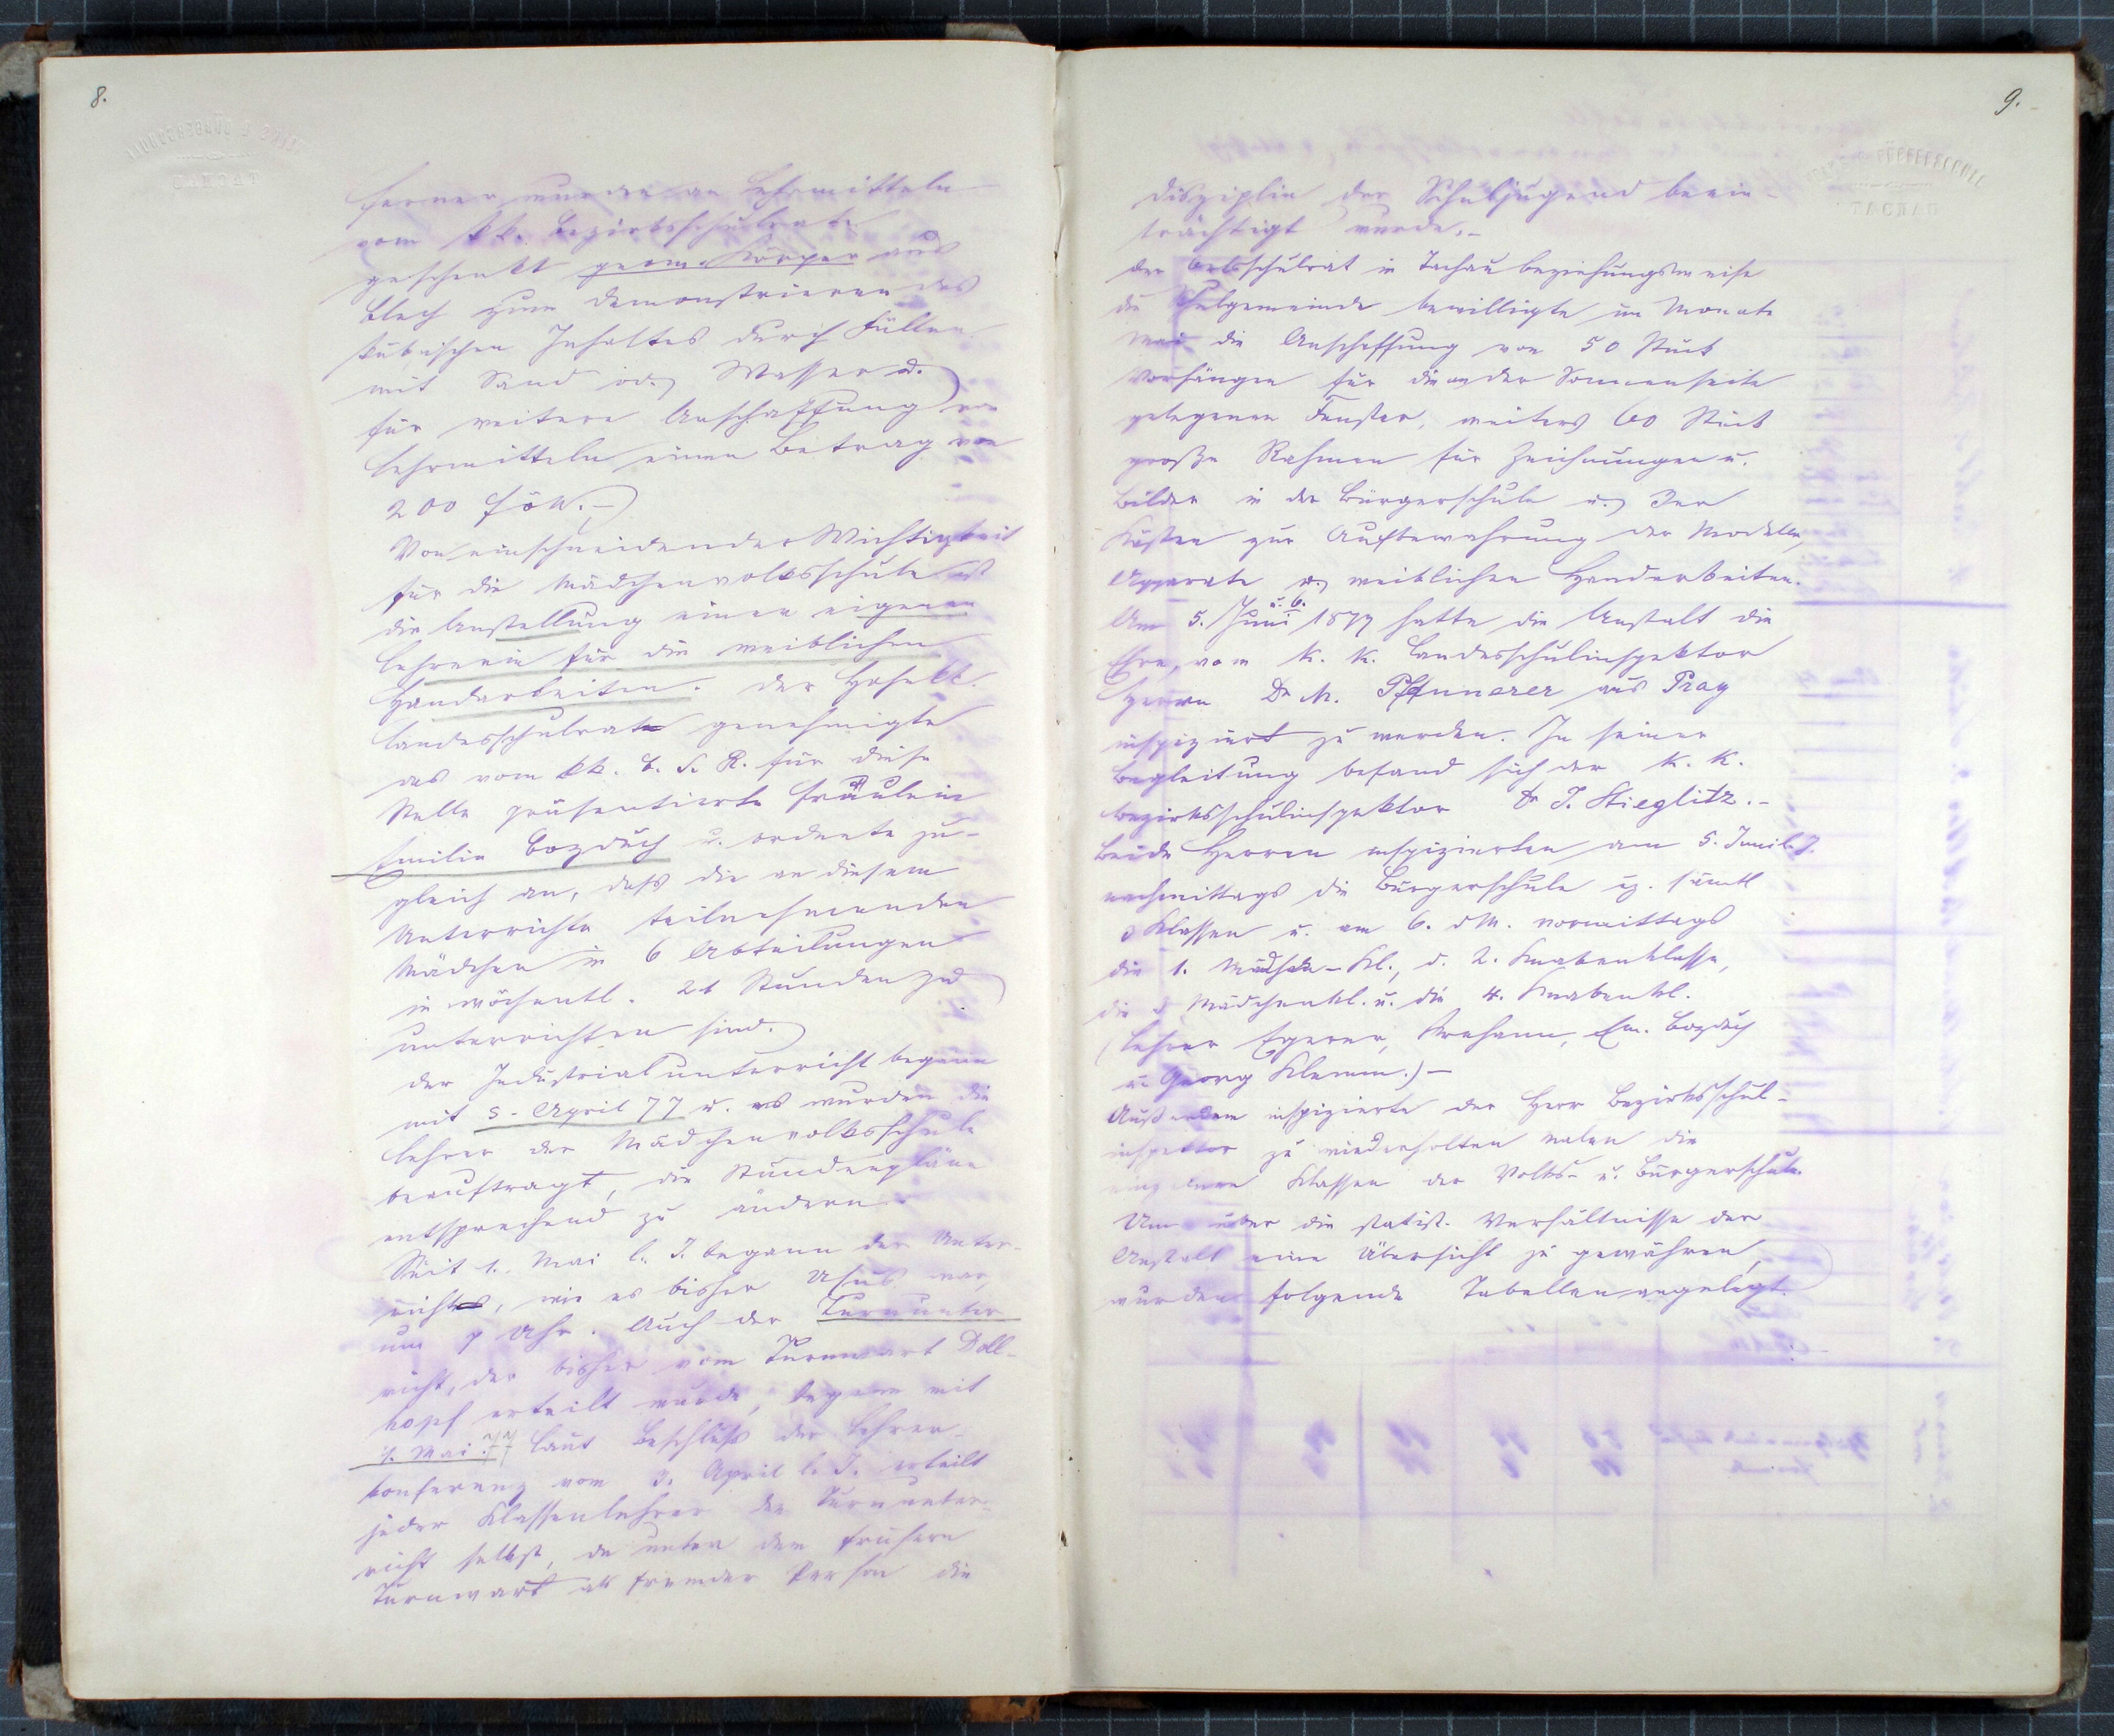 8.
ferner wurden an Lehrmitteln
vom kk. Bezirksschulrate
geschenkt geom. Körper aus
Blech zum Demonstrieren des
kubischen Inhaltes durch Füllen
mit Sand od. Wasser u.
für weitere Anschaffung von
Lehrmitteln einen Betrag von
200 f ö. W.-
Von einschneidender Wichtigkeit
für die Mädchenvolksschule ist
die Anstellung einer eigenen
Lehrerin für die weiblichen
Handarbeiten. Der Hohe kk.
Landesschulrat genehmigte
das vom kk. B. S. R. für diese
Stelle präsentierte Fräulein
Emilie Bozduch u. ordnete zu-
gleich an, daß die an diesem
Unterrichte teilnehmenden
Mädchen in 6 Abteilungen
in wöchentl. 21 Stunden zu
unterrichten sind.
Der Industrialunterricht begann
mit 5. April 77 u. es wurden die
Lehrer der Mädchenvolksschule
beauftragt, die Stundenpläne
entsprechend zu ändern.
Seit 1. Mai l. J. begann der Unter-
richt, wie es bisher Usus war,
um 7 Uhr. Auch der Turnunter
richt, der bisher vom Turnwart Doll-
hopf erteilt wurde, begann mit
1. Mai 77 laut Beschluß der Lehrer-
konferenz vom 3. April l. J. erteilt
jeder Klassenlehrer den Turnunter-
richt selbst, da unter dem frühern
Turnwart als fremder Person die
9.
Disziplin der Schuljugend beein-
trächtigt wurde.-
Der Ortsschulrat in Tachau beziehungsweise
die Schulgemeinde bewilligte im Monate
Mai die Anschaffung von 50 Stück
Vorhängen für die an der Sonnenseite
gelegenen Fenster, weiters 60 Stück
große Rahmen für Zeichnungen u.
Bilder in der Bürgerschule u. 3er
Kästen zur Aufbewahrung der Modelle,
Apparate u. weiblichen Handarbeiten.
Am 5. u. 6. Juni 1877 hatte die Anstalt die
Ehre, vom K. K. Landesschulinspektor
Herrn Dr M. Pfannerer aus Prag
inspiziert zu werden. In seiner
Begleitung befand sich der K. K.
Bezirksschulinspektor Dr J. Stieglitz.-
Beide Herren inspizierten am 5. Juni l. J.
nachmittags die Bürgerschule uz. sämtl
3 Klassen u. am 6. d M. vormittags
die 1. Mädchen-Kl., d. 2. Knabenklasse,
die 3 Mädchenkl. u. die 4. Knabenkl.
(Lehrer Egerer, Em. Bozduch
u. Georg Klemm.)-
Außerdem inspizierte der Herr Bezirksschul-
inspektor zu wiederholten malen die
einzelnen Klassen der Volks- u. Bürgerschule.
Um über die statist. Verhältnisse der
Anstalt eine Übersicht zu gewähren,
wurden folgende Tabellen angelegt.